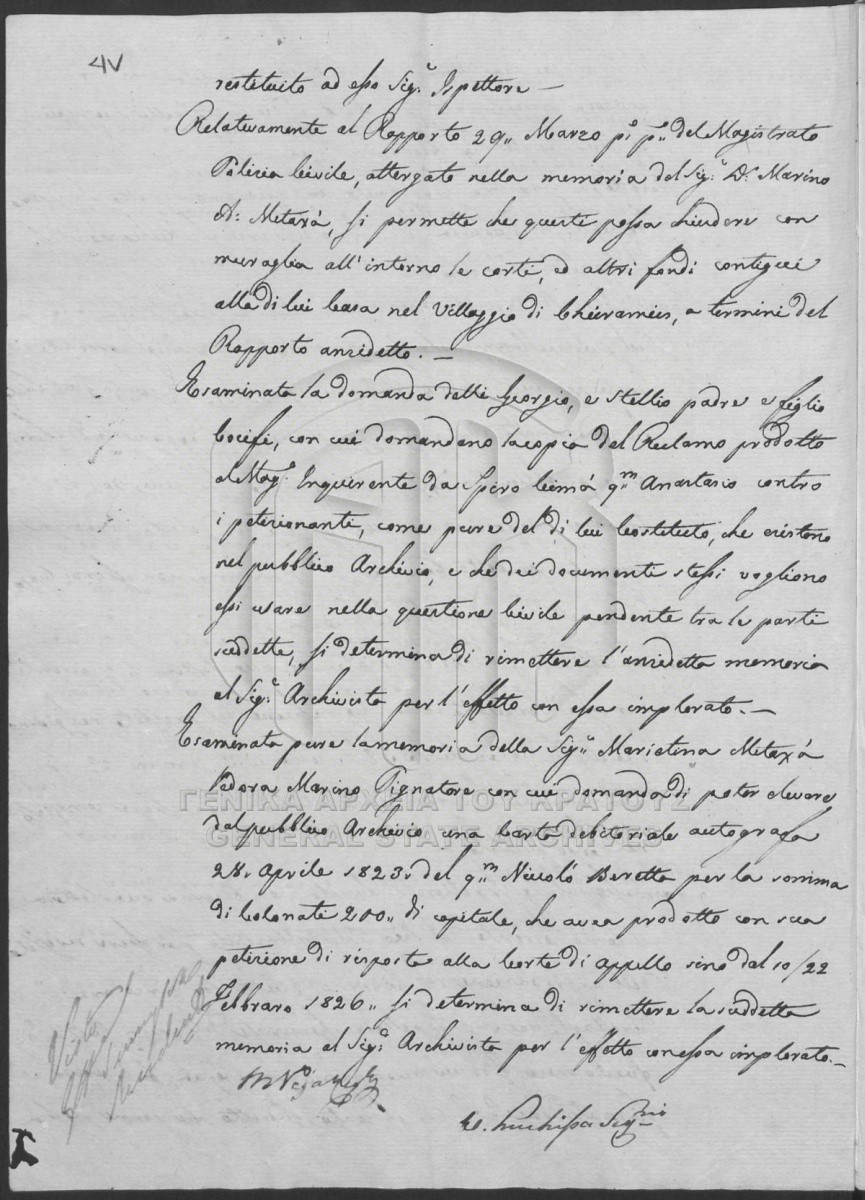 4V
restituito ad esso Sig.r Ispettore —
Relativamente al Rapporto 29„ Marzo p.º p.º del Magistrato
Polizia Civile, attergato nella memoria del Sig.r D.r Marino
A: Metaxà, si permette che questi possa chiudere con
muraglia all'intorno le corti, ed altri fondi contigui
alla di lui Casa nel Villaggio di Chieramies, a termini del
Rapporto anzidetto. —
Esaminata la domanda delli Giorgio, e Stellio padre e figlio
Cocifi, con cui domandano la copia del Reclamo prodotto
al Mag.º Inquirente da Spiro Cimà q.m Anastasio contro
i petizionanti, come pure del di lui Costituto, che esistono
nel pubblico Archivio, e che dei documenti stessi vogliono
essi usare nella questione Civile pendente tra le parti
suddette, si determina di rimettere l'anzidetta memoria
al Sig.r Archivista per l'effetto con essa implorato. —
Esaminata pure la memoria della Sig.ra Marietina Metaxà
Vedova Marino Pignatore con cui domanda di poter levare
dal pubblico Archivio una Carta debitoriale autografa
28„ Aprile 1823„ del q.m Niccolò Beretta per la somma
di Colonati 200„ di capitale, che avea prodotto con sua
petizione di risposta alla Corte di Appello sino dal 10/22
Febbraro 1826„ si determina di rimettere la suddetta
memoria al Sig.r Archivista per l'effetto con essa implorato. —
Visto
ΓΕΝΙΚΑ ΑΡΧΕΙΑ ΤΟΥ ΚΡΑΤΟΥΣ
GENERAL STATE ARCHIVES